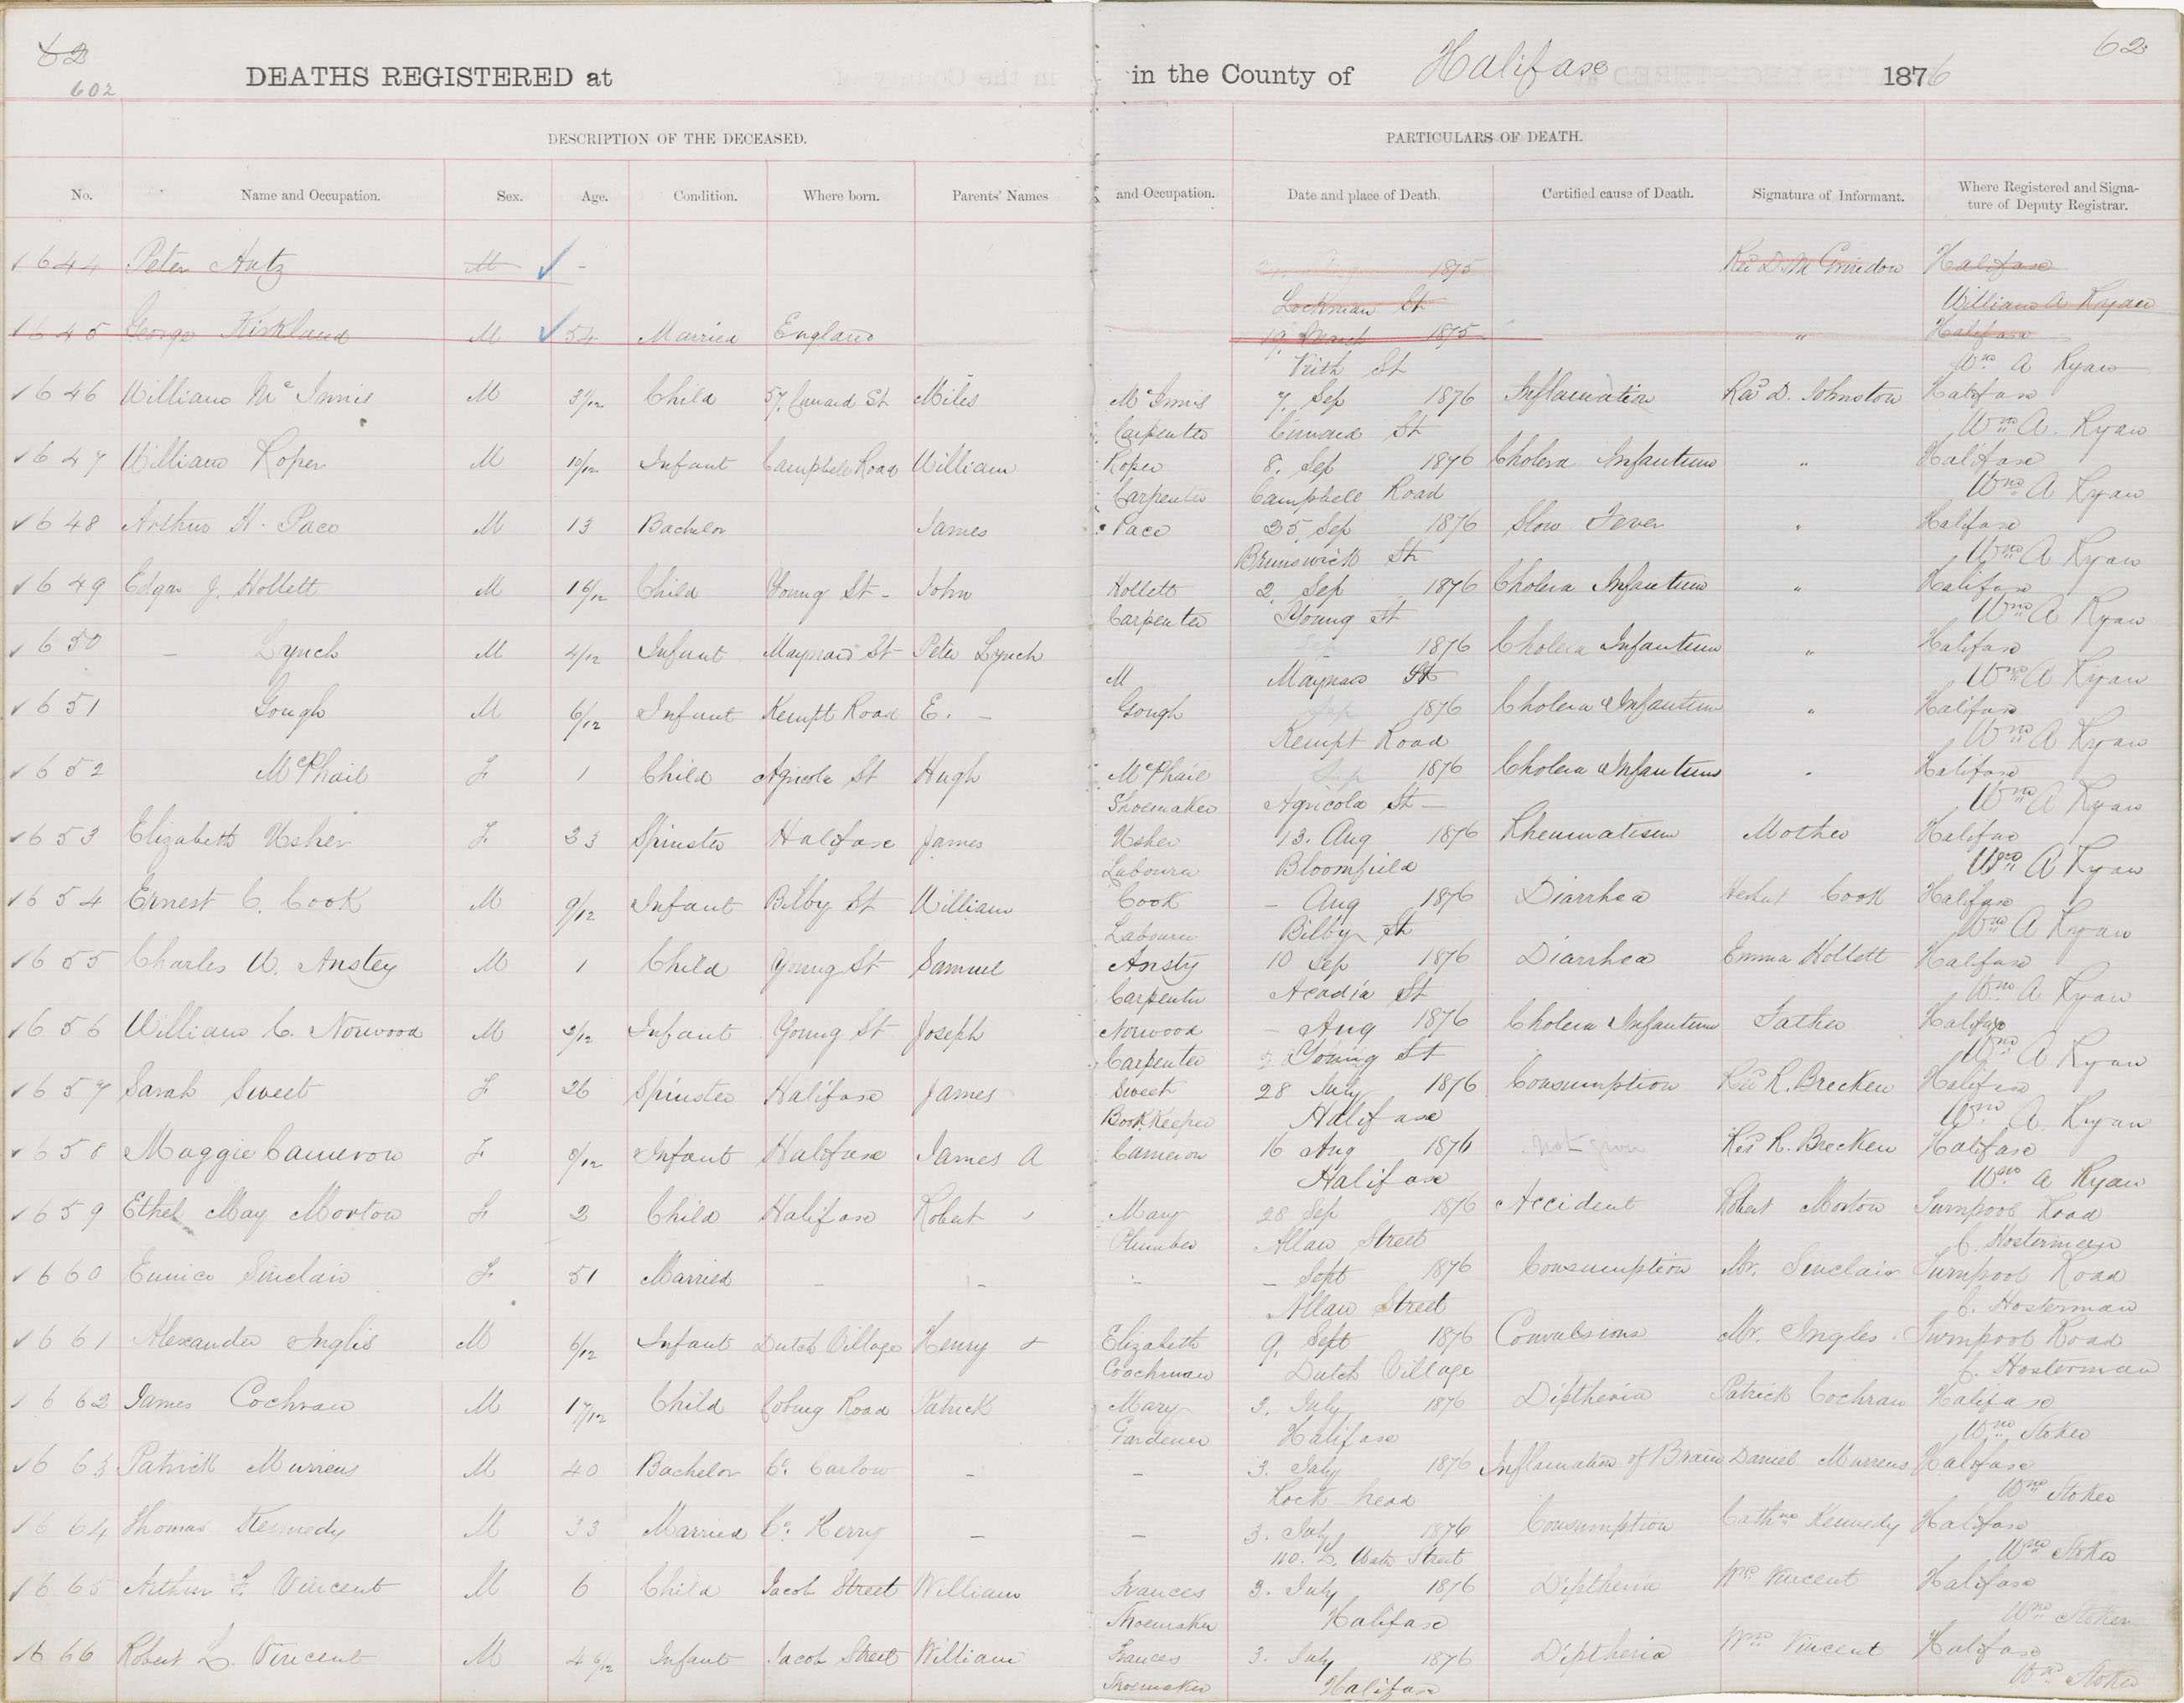 62 62
602
DEATHS REGISTERED at in the County of Halifax 1876
DESCRIPTION OF THE DECEASED. PARTICULARS OF DEATH.
No. Name and Occupation. Sex. Age. Condition. Where born. Parents' Names and Occupation. Date and place of Death. Certified cause of Death. Signature of Informant. Where Registered and Signa-
ture of Deputy Registrar.
644 Peter Artz M - 1875 Halifax
Lockman St William A Ryan
645 George Kirkland M 54 Married England 19, March 1875 " Halifax
Keith St Wm A Ryan
646 William McInnis M Child 57, Cunard St Miles McInnis 7, Sep 1876 Inflamation Revd D. Johnston Halifax
Carpenter Cunard St Wm A. Ryan
647 William Roper M 10/12 Infant Campbell Road William Roper 8. Sep 1876 Cholera Infantum " Halifax
Carpenter Campbell Road Wm A Ryan
648 Arthur H. Pace M 13 Bachelor James Pace 25 Sep 1876 Slow Fever " Halifax
Brunswick St Wm A Ryan
649 Edgar J. Hollett M 1 6/12 Child Young St - John Hollett 2, Sep 1876 Cholera Infantum " Halifax
Carpenter Young St Wm A Ryan
650 - Lynch M 4/12 Infant Maynard St Peter Lynch Sep 1876 Cholera Infantum " Halifax
M Maynard St Wm A Ryan
651 Gough M 6/12 Infant Kempt Road E. - Gough Sep 1876 Cholera Infantum " Halifax
Kempt Road Wm A Ryan
652 McPhail F 1 Child Agricola St Hugh McPhail Sep 1876 Cholera Infantum " Halifax
Shoemaker Agricola St - Wm A Ryan
653 Elizabeth Usher F 33 Spinster Halifax James Usher 13. Aug 1876 Rheumatism Mother Halifax
Labourer Bloomfield Wm A Ryan
654 Ernest C. Cook M 9/12 Infant Bilby St William Cook - Aug 1876 Diarrhea Cook Halifax
Labourer Bilby St Wm A Ryan
655 Charles W. Anstey M 1 Child Young St Samuel Ansty 10 Sep 1876 Diarrhea Emma Hollett Halifax
Carpenter Acadia St Wm A Ryan
656 William C. Norwood M 2/12 Infant Young St Joseph Norwood - Aug 1876 Cholera Infantum Father Halifax
Carpenter Young St Wm A Ryan
657 Sarah Sweet F 26 Spinster Halifax James Sweet 28 July 1876 Consumption Revd R. Brecken Halifax
Book Keeper Halifax Wm A. Ryan
658 Maggie Cameron F 8/12 Infant Halifax James A Cameron 16 Aug 1876 not given Revd R. Brecken Halifax
Halifax Wm A Ryan
659 Ethel May Morton F 2 Child Halifax Robert Mary 28 Sep 1876 Accident Robert Morton Turnpool Road
Plumber Allan Street C. Hosterman
660 Eunice Sinclair F 51 Married - - - - Sept 1876 Consumption Mr. Sinclair Turnpool Road
Allan Street C. Hosterman
661 Alexander Inglis M 6/12 Infant Dutch Village Henry & Elizabeth 9, Sept 1876 Convulsions Mr. Ingles Turnpool Road
Coachman Dutch Village C. Hosterman
662 James Cochran M 1 7/12 Child Coburg Road Patrick Mary 3. July 1876 Diptheria Patrick Cochran Halifax
Gardener Halifax Wm Stoker
663 Patrick Murrens M 40 Bachelor Co. Carlow - - 3. July 1876 Inflamation of Brain Daniel Murrens Halifax
Rock head Wm Stoker
664 Thomas Kennedy M 33 Married Co. Kerry - - 3. July 1876 Consumption Cathne Kennedy Halifax
110. L. Water Street Wm Stoker
665 Arthur F. Vincent M 6 Child Jacob Street William Frances 3. July 1876 Diptheria Wm Vincent Halifax
Shoemaker Halifax Wm Stoker
666 Robert L. Vincent M 4 6/12 Infant Jacob Street William Frances 3. July 1876 Diptheria Wm Vincent Halifax
Shoemaker Halifax Wm Stoker